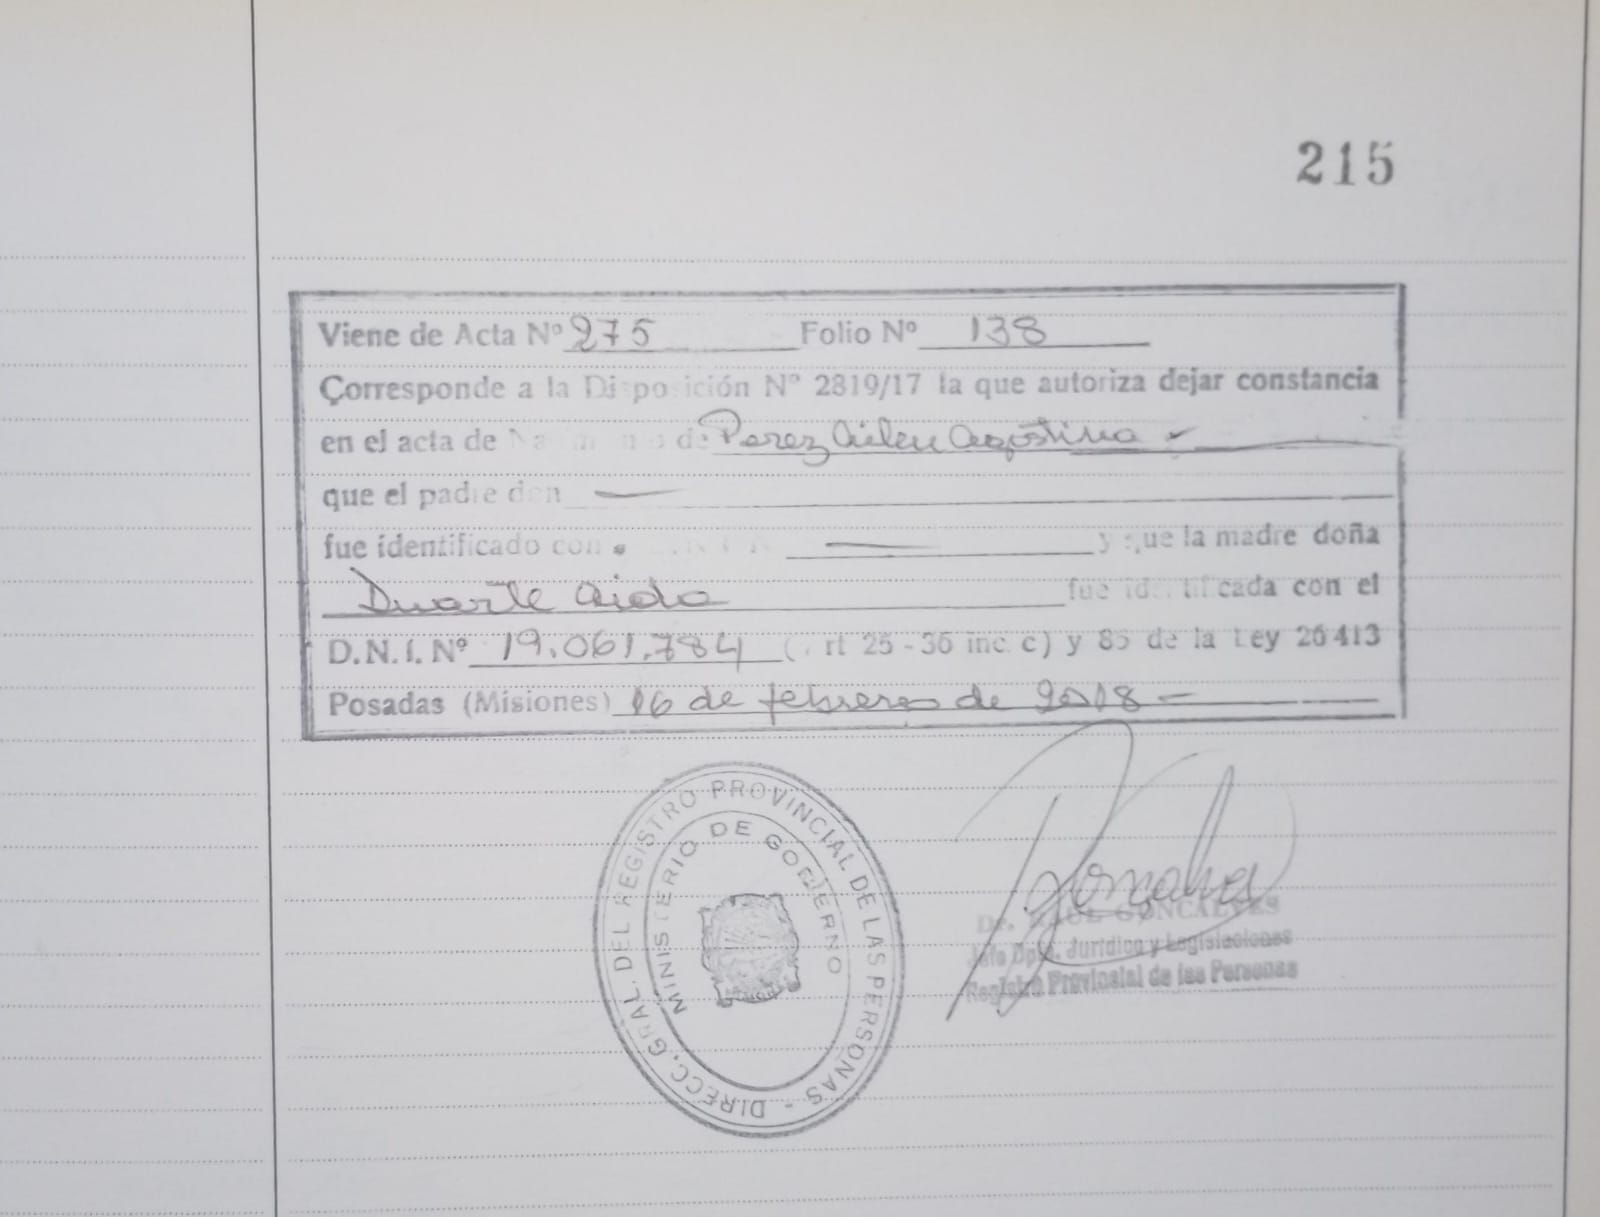 215
Viene de Acta Nº 275 Folio Nº 138
Corresponde a la Disposición Nº 2819/17 la que autoriza dejar constancia
en el acta de de Perez Ailen Agostina
que el padre don
fue identificado con y que la madre doña
Duarte Aida fue identificada con el
D.N.I. Nº 19.061.784 ( rt 25 - 36 inc. c) y 85 de la Ley 26413
Posadas (Misiones) 16 de febrero de 2018 -
DIRECC. GRAL. DEL REGISTRO PROVINCIAL DE LAS PERSONAS -
MINISTERIO DE GOBIERNO
Dr. RAUL GONCALVES
Jefe Dpto. Jurídico y Legislaciones
Registro Provincial de las Personas